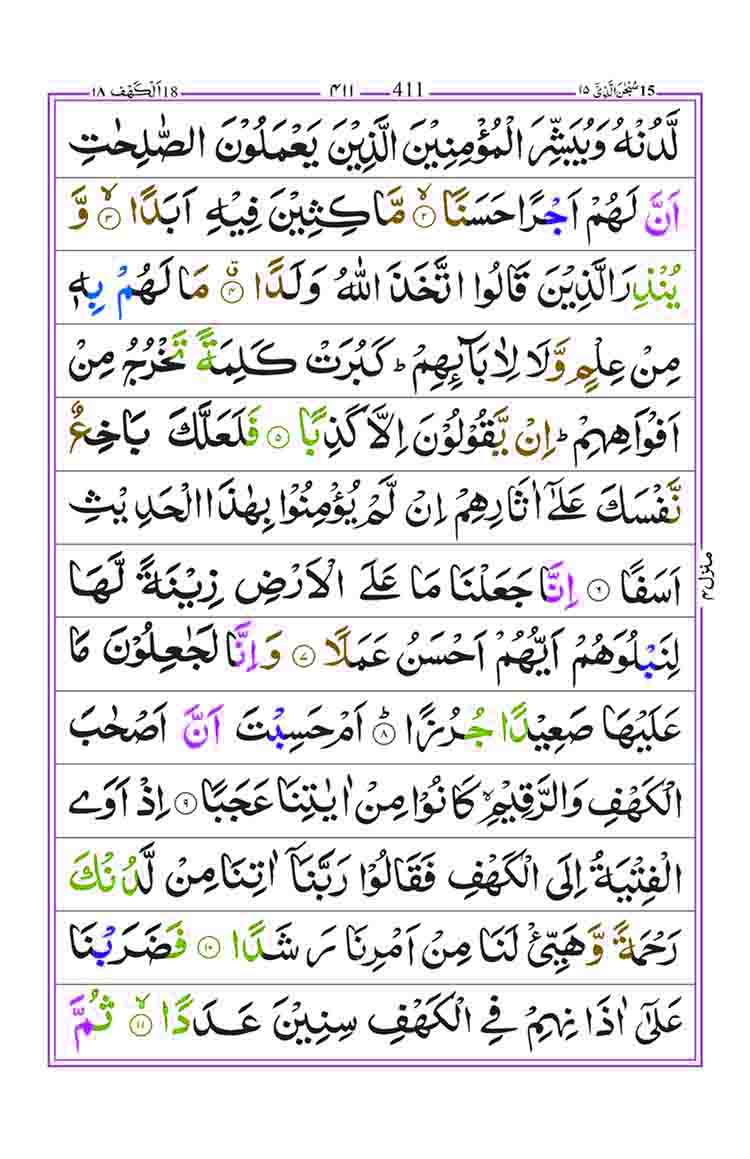 ١٨ اَلْكَهْف 18 ٤١١ 411 سُبْحٰنَ الَّذِیْۤ ١٥ 15
لَّدُنْهُ وَیُبَشِّرَ الْمُؤْمِنِیْنَ الَّذِیْنَ یَعْمَلُوْنَ الصّٰلِحٰتِ
اَنَّ لَهُمْ اَجْرًا حَسَنًا ۙ﴿۲﴾ مَّاكِثِیْنَ فِیْهِ اَبَدًا ۙ﴿۳﴾ وَّ
یُنْذِرَ الَّذِیْنَ قَالُوا اتَّخَذَ اللّٰهُ وَلَدًا ۗ﴿۴﴾ مَا لَهُمْ بِهٖ
مِنْ عِلْمٍ وَّلَا لِاٰبَآئِهِمْ ؕ كَبُرَتْ كَلِمَةً تَخْرُجُ مِنْ
اَفْوَاهِهِمْ ؕ اِنْ یَّقُوْلُوْنَ اِلَّا كَذِبًا ﴿۵﴾ فَلَعَلَّكَ بَاخِعٌ
نَّفْسَكَ عَلٰۤی اٰثَارِهِمْ اِنْ لَّمْ یُؤْمِنُوْا بِهٰذَا الْحَدِیْثِ
اَسَفًا ﴿۶﴾ اِنَّا جَعَلْنَا مَا عَلَی الْاَرْضِ زِیْنَةً لَّهَا
لِنَبْلُوَهُمْ اَیُّهُمْ اَحْسَنُ عَمَلًا ﴿۷﴾ وَاِنَّا لَجٰعِلُوْنَ مَا
عَلَیْهَا صَعِیْدًا جُرُزًا ؕ﴿۸﴾ اَمْ حَسِبْتَ اَنَّ اَصْحٰبَ
الْكَهْفِ وَالرَّقِیْمِ ۙ كَانُوْا مِنْ اٰیٰتِنَا عَجَبًا ﴿۹﴾ اِذْ اَوَی
الْفِتْیَةُ اِلَی الْكَهْفِ فَقَالُوْا رَبَّنَاۤ اٰتِنَا مِنْ لَّدُنْكَ
رَحْمَةً وَّهَیِّئْ لَنَا مِنْ اَمْرِنَا رَشَدًا ﴿۱۰﴾ فَضَرَبْنَا
عَلٰۤی اٰذَانِهِمْ فِی الْكَهْفِ سِنِیْنَ عَدَدًا ۙ﴿۱۱﴾ ثُمَّ
منزل ۴